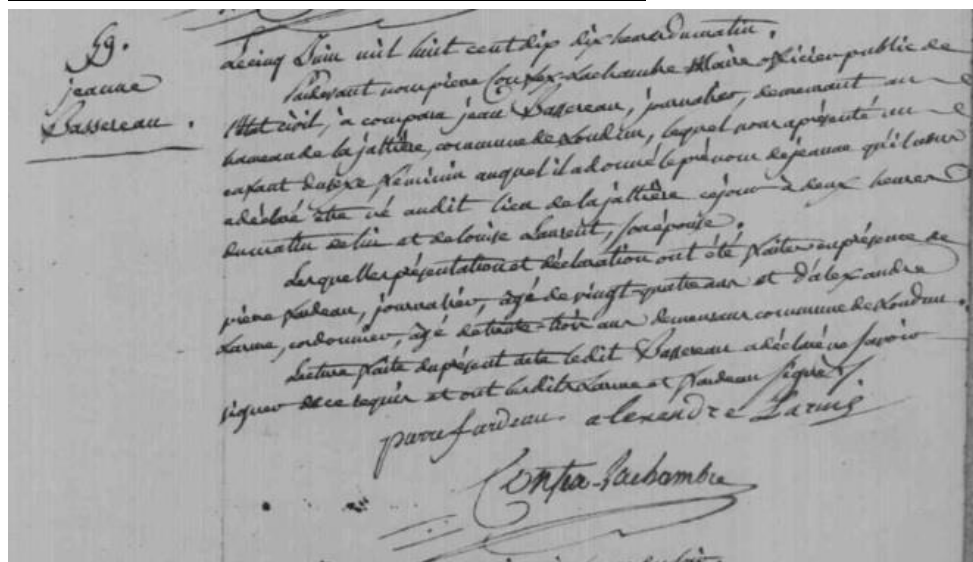 59.
jeanne
Bassereau.
Le cinq Juin mil huit cent dix dix heures du matin.
Pardevant nous pierre Contex-Lachambre Maire officier public de
l'état civil, à comparu jean Bassereau, journalier, demeurant au
hameau de la jattière, commune de Loudun, lequel nous a présenté un
enfant du sexe féminin auquel il a donné le prénom de jeanne qu'il nous
a déclaré être né audit lieu de la jattière cejour à deux heures
du matin de lui et de louise Laurent, son épouse.
Lesquelles présentation et déclaration ont été faites en présence de
pierre fardeau, journalier, âgé de vingt-quatre ans et d'alexandre
Larme, cordonnier, âgé de trente-trois ans demeurans commune de Loudun.
Lecture faite du présent acte ledit Bassereau a déclaré ne savoir
signer de ce requis et ont lesdits Larme et fardeau signé
pierre fardeau. alexandre Larme
Lachambre